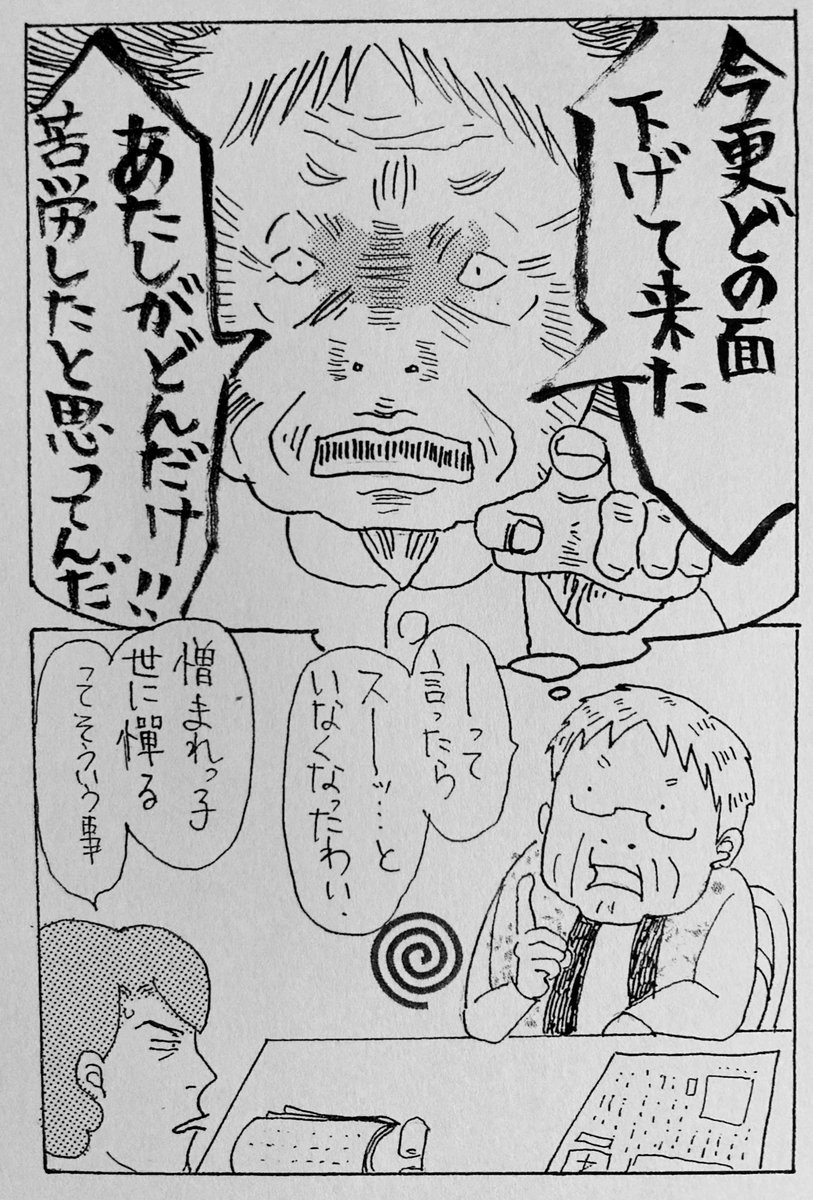 今更どの面
下げて来た
あたしがどんだけ
苦労したと思ってんだ!!
ーって
言ったら
スーッ…と
いなくなったわい.
憎まれっ子
世に憚る
ってそういう事